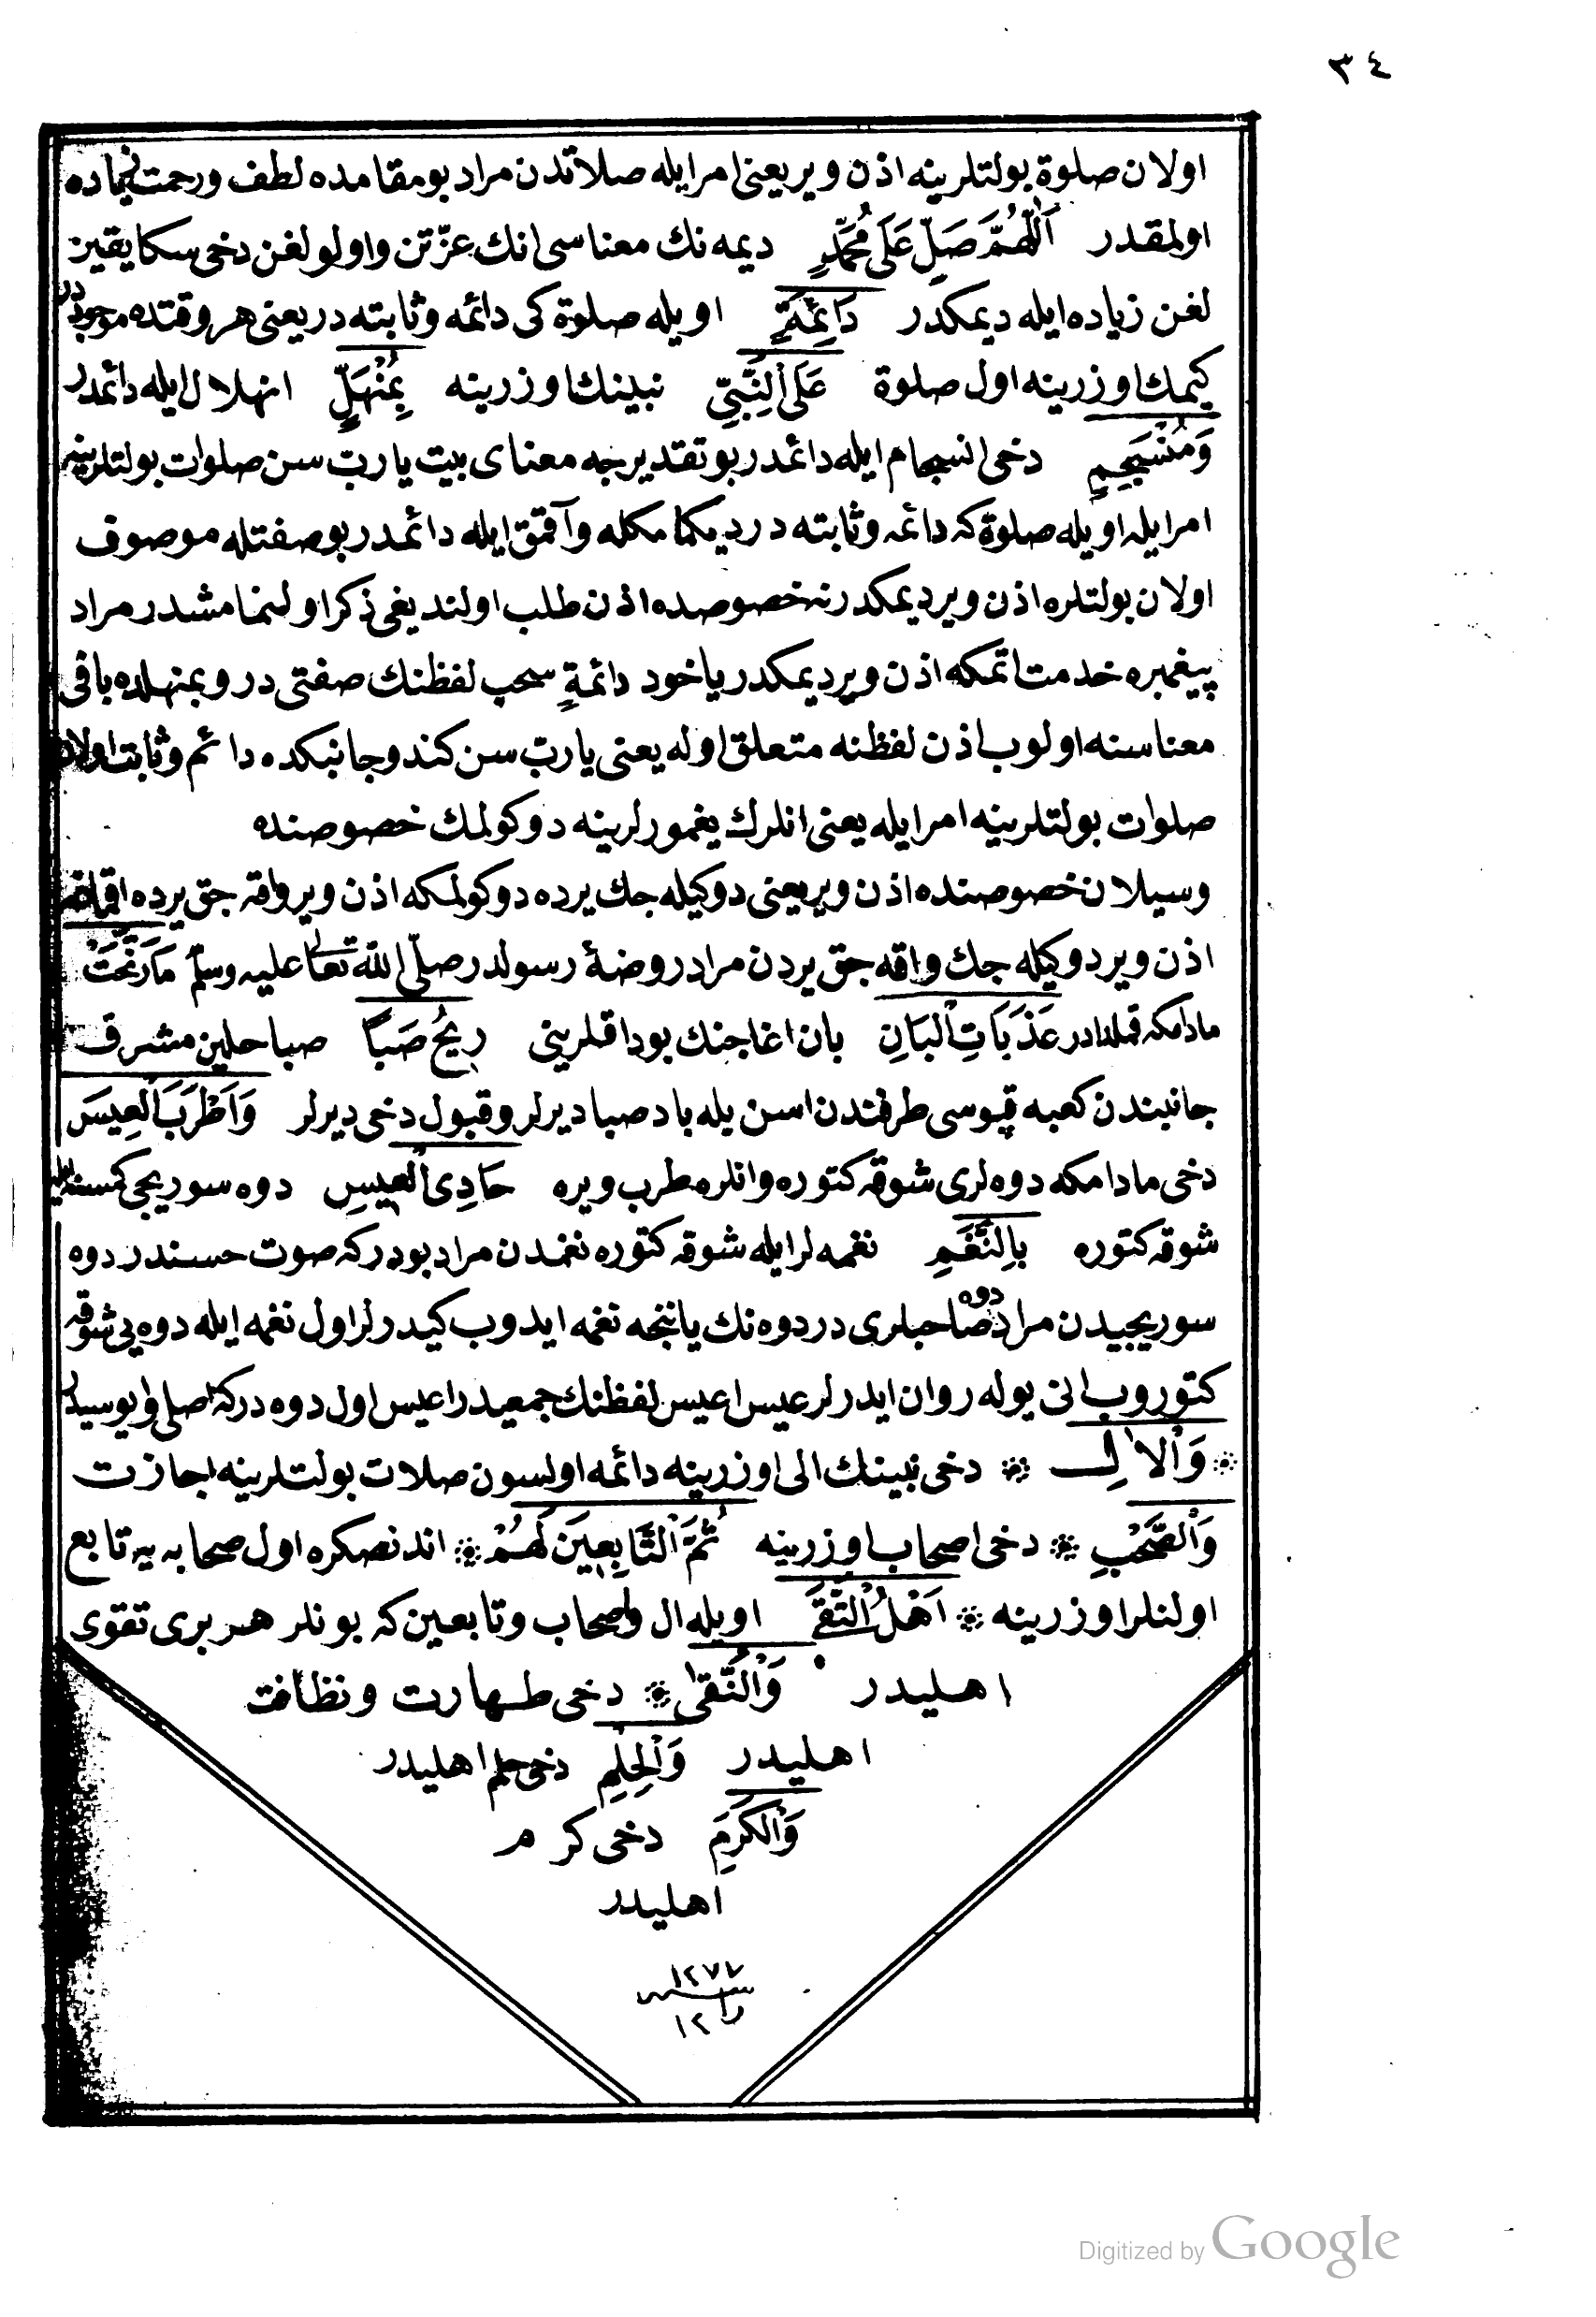 ٣٤
اولان صلوة بولتلرينه اذن وير يعنى امر ايله صلاتدن مراد بو مقامده لطف ورحمت زياده
اولمقدر اَللّٰهُمَّ صَلِّ عَلَى مُحَمَّدٍ ديمه نك معناسى انك عزّتن واولولغن دخى سكا يقين
لغن زياده ايله ديمكدر دَائِمَةٍ اويله صلوة كى دائمه وثابته در يعنى هر وقتده موجوددر
كيمك اوزرينه اول صلوة عَلَى النَّبِيِّ نبينك اوزرينه بِمُنْهَلٍّ انهلال ايله دائمدر
وَمُنْسَجِمٍ دخى انسجام ايله دائمدر بو تقديرجه معناى بيت يا ربّ سن صلوات بولتلرينه
امر ايله اويله صلوة كه دائمه وثابته در ديكمامكله وآقمق ايله دائمدر بو صفتله موصوف
اولان بولتلره اذن وير ديمكدر نه خصوصده اذن طلب اولنديغى ذكر اولنمامشدر مراد
پيغمبره خدمت اتمكه اذن وير ديمكدر ياخود دائمةٍ سحب لفظنك صفتى در وبمنهلده باقى
معناسنه اولوب اذن لفظنه متعلق اوله يعنى يا ربّ سن كندو جانبكده دائم وثابت اولان
صلوات بولتلرينه امر ايله يعنى انلرك يغمورلرينه دوكولمك خصوصنده
وسيلان خصوصنده اذن وير يعنى دوكيله جك يرده دوكولمكه اذن وير واقه جق يرده اقمغه
اذن وير دوكيله جك واقه جق يردن مراد روضهٔ رسولدر صلّى الله تعالى عليه وسلّم مَا رَنَّحَتْ
مادامكه قملدادر عَذَبَاتِ الْبَانِ بان اغاجنك بوداقلرينى رِيحُ صَبًا صباحلين مشرق
جانبندن كعبه قپوسى طرفندن اسن يله باد صبا ديرلر وقبول دخى ديرلر وَاَطْرَبَ الْعِيسَ
دخى مادامكه دوه لرى شوقه كتوره وانلره طرب ويره حَادِى الْعِيسِ دوه سوريجى كمسنه لر
شوقه كتوره بِالنَّغَمِ نغمه لر ايله شوقه كتوره نغمدن مراد بودركه صوت حسندر دوه
سوريجيدن مراد دوه صاحبلرى در دوه نك ياننجه نغمه ايدوب كيدرلر اول نغمه ايله دوه يى شوقه
كتوروب انى يوله روان ايدرلر عيس اعيس لفظنك جمعيدر اعيس اول دوه دركه اصلى وايوسيدر
وَالْاٰلِ دخى نبينك الى اوزرينه دائمه اولسون صلات بولتلرينه اجازت
وَالصَّحْبِ دخى اصحاب اوزرينه ثُمَّ التَّابِعِينَ لَهُمْ اندنصكره اول صحابه يه تابع
اولنلر اوزرينه اَهْلُ التُّقَى اويله ال واصحاب وتابعين كه بونلر هر برى تقوى
اهليدر وَالنَّقٰى دخى طهارت ونظافت
اهليدر وَالْحِلْمِ دخى حلم اهليدر
وَالْكَرَمِ دخى كرم
اهليدر
١٢٧٧
سنه
را
١٢
Digitized by Google